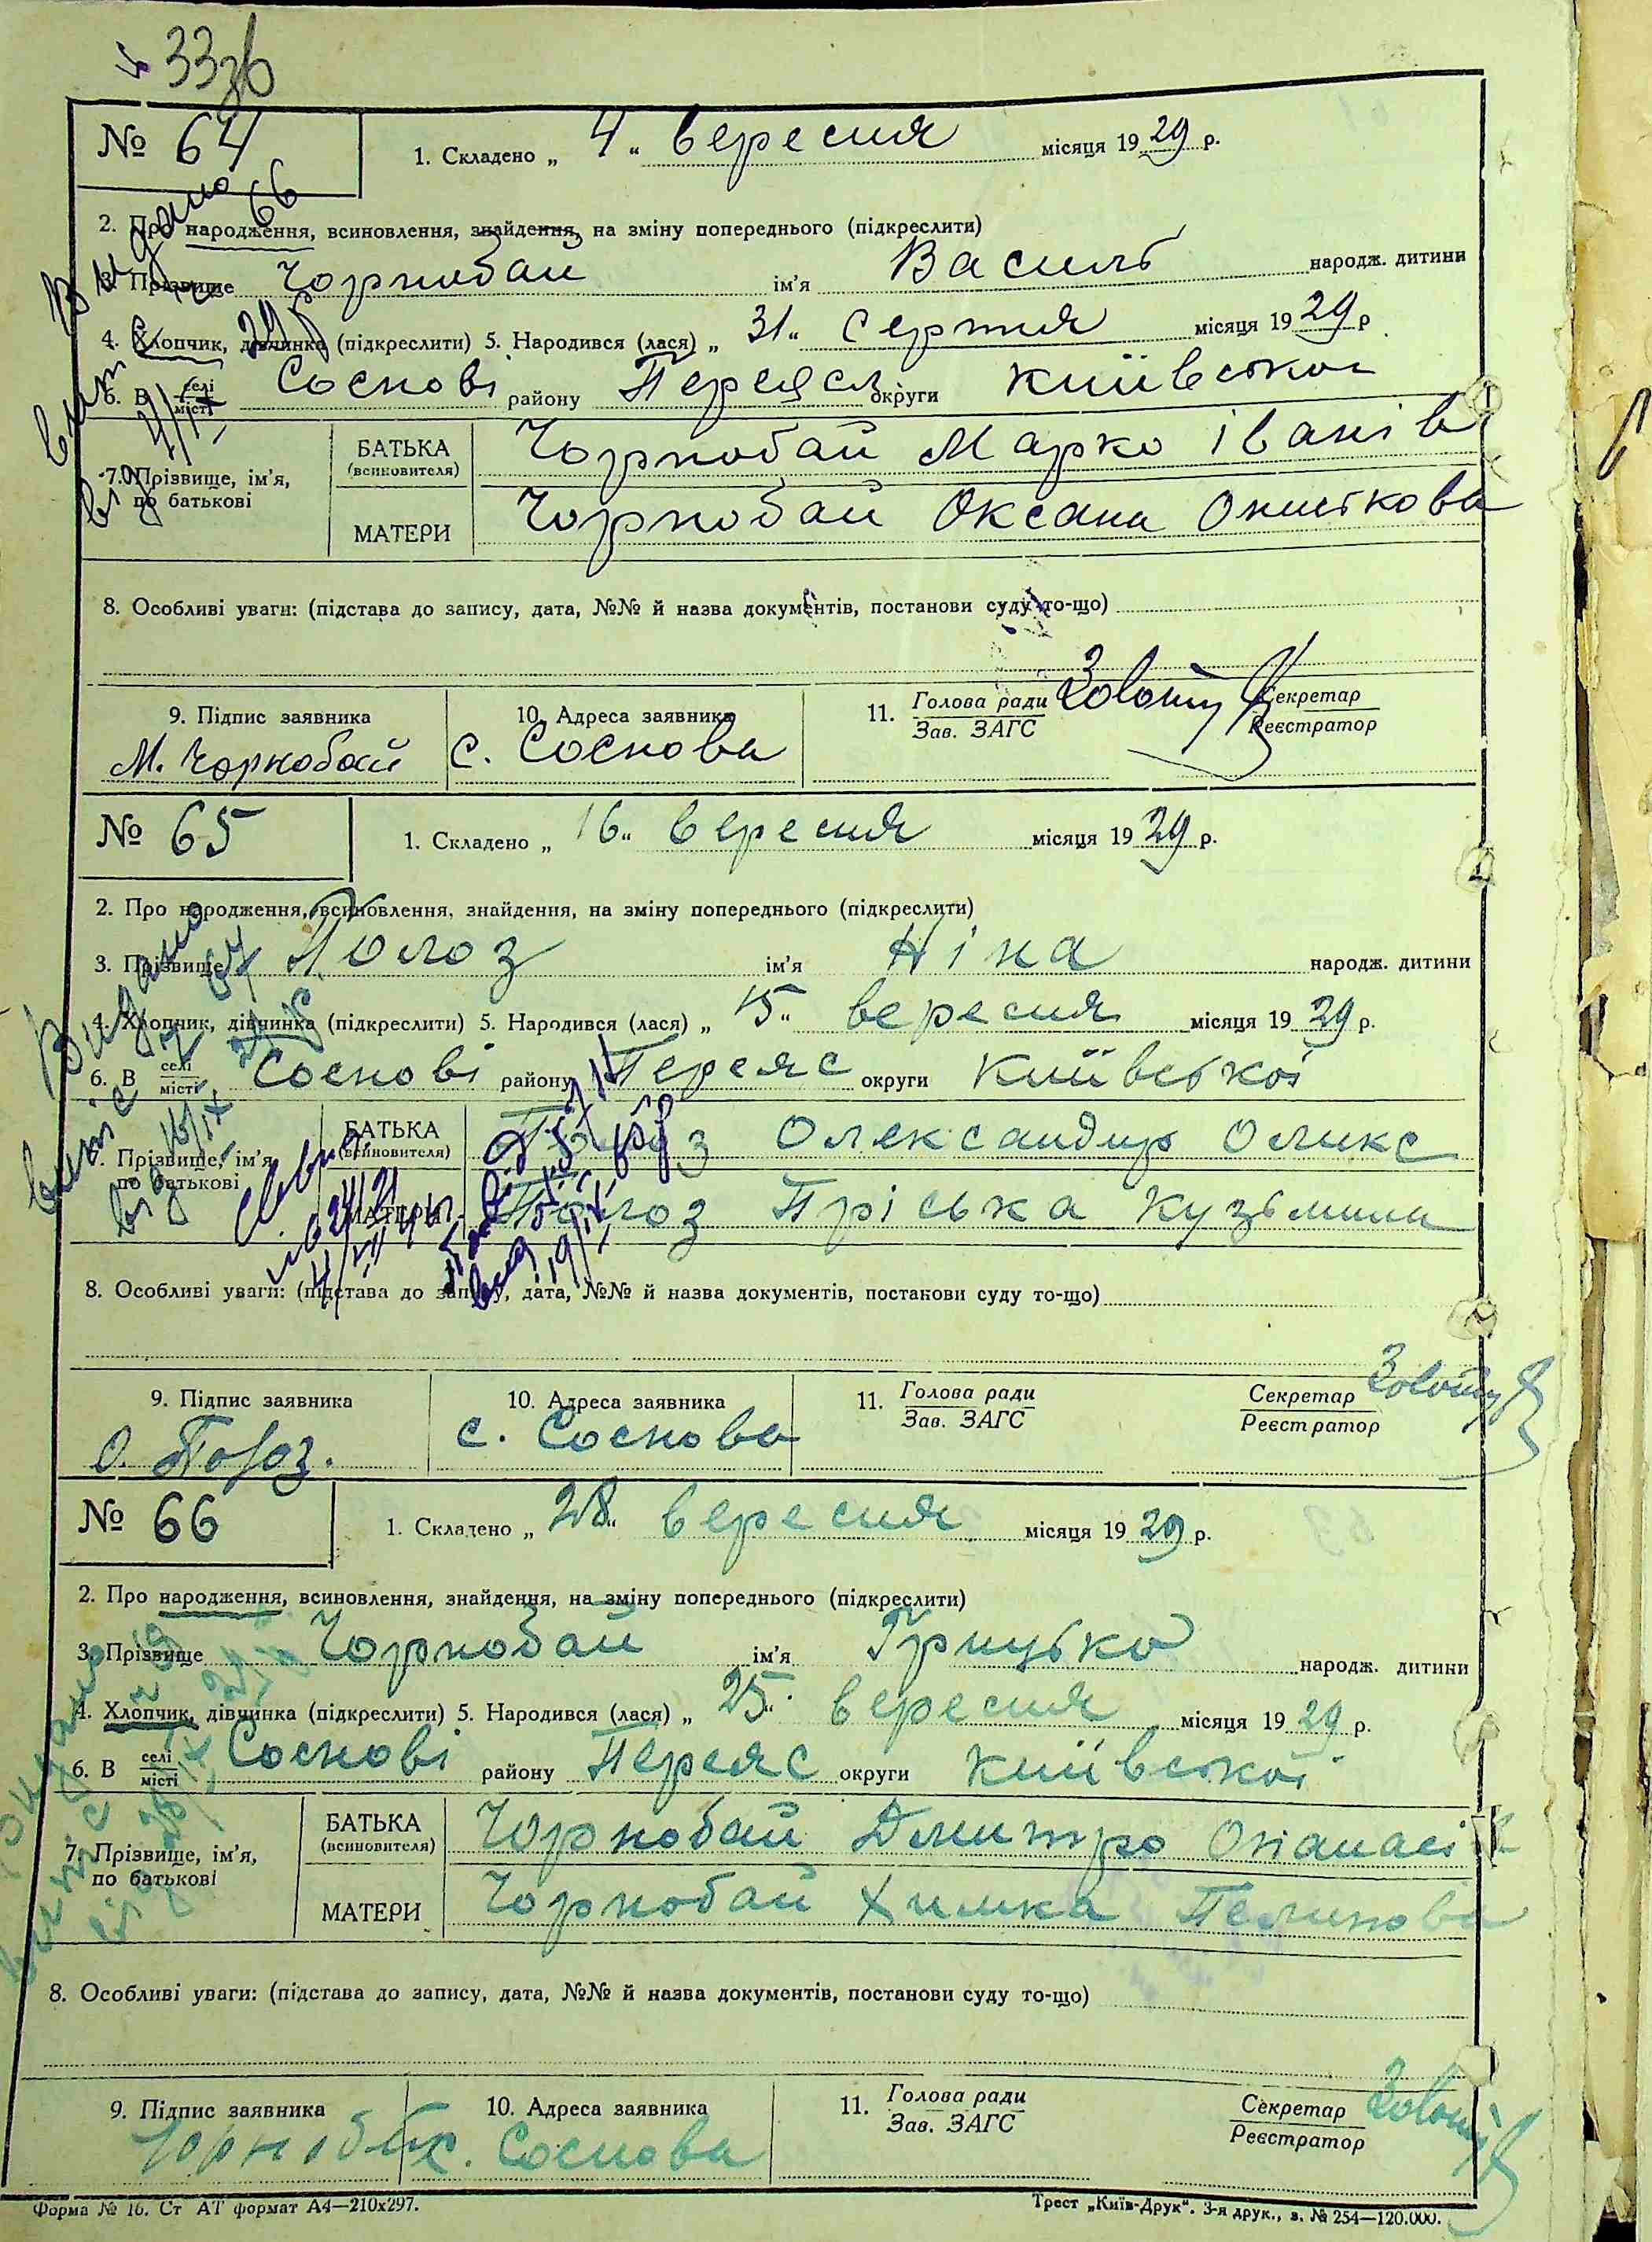 33зв
№ 64
1. Складено „ 4 “ вересня місяця 1929 р.
2. Про народження, всиновлення, знайдення, на зміну попереднього (підкреслити)
3. Прізвище Чорнобай ім’я Василь народж. дитини
4. Хлопчик, дівчинка (підкреслити) 5. Народився (лася) „ 31 “ серпня місяця 1929 р
6. В селі місті Соснові району Переясл. округи Київської
7. Прізвище, ім’я, по батькові
БАТЬКА (всиновителя) Чорнобай Марко Іванів
МАТЕРИ Чорнобай Оксана Онисткова
Видано витяг від 4/IX 29 р
66
8. Особливі уваги: (підстава до запису, дата, №№ й назва документів, постанови суду то-що)
9. Підпис заявника 10. Адреса заявника 11. Голова ради Зав. ЗАГС Секретар Реєстратор
М. Чорнобай с. Соснова
№ 65
1. Складено „ 16 “ вересня місяця 1929 р.
2. Про народження, всиновлення, знайдення, на зміну попереднього (підкреслити)
3. Прізвище Полоз ім’я Ніна народж. дитини
4. Хлопчик, дівчинка (підкреслити) 5. Народився (лася) „ 15 “ вересня місяця 1929 р.
6. В селі місті Соснові району Переяс округи Київської
7. Прізвище, ім’я, по батькові
БАТЬКА (всиновителя) Полоз Олександир Оликс
МАТЕРИ Полоз Пріська Кузьмина
Видано витяг від 16/IX 29 р
67
8. Особливі уваги: (підстава до запису, дата, №№ й назва документів, постанови суду то-що)
9. Підпис заявника 10. Адреса заявника 11. Голова ради Зав. ЗАГС Секретар Реєстратор
О. Полоз. с. Соснова
№ 66
1. Складено „ 28 “ вересня місяця 1929 р.
2. Про народження, всиновлення, знайдення, на зміну попереднього (підкреслити)
3. Прізвище Чорнобай ім’я Грицько народж. дитини
4. Хлопчик, дівчинка (підкреслити) 5. Народився (лася) „ 25 “ вересня місяця 1929 р.
6. В селі місті Соснові району Переяс округи Київської
7. Прізвище, ім’я, по батькові
БАТЬКА (всиновителя) Чорнобай Дмитро Опанасів
МАТЕРИ Чорнобай Химка Пелипова
8. Особливі уваги: (підстава до запису, дата, №№ й назва документів, постанови суду то-що)
9. Підпис заявника 10. Адреса заявника 11. Голова ради Зав. ЗАГС Секретар Реєстратор
Чорнобай с. Соснова
Форма № 16. Ст АТ формат А4—210х297. Трест „Київ-Друк“. 3-я друк., з. № 254—120.000.